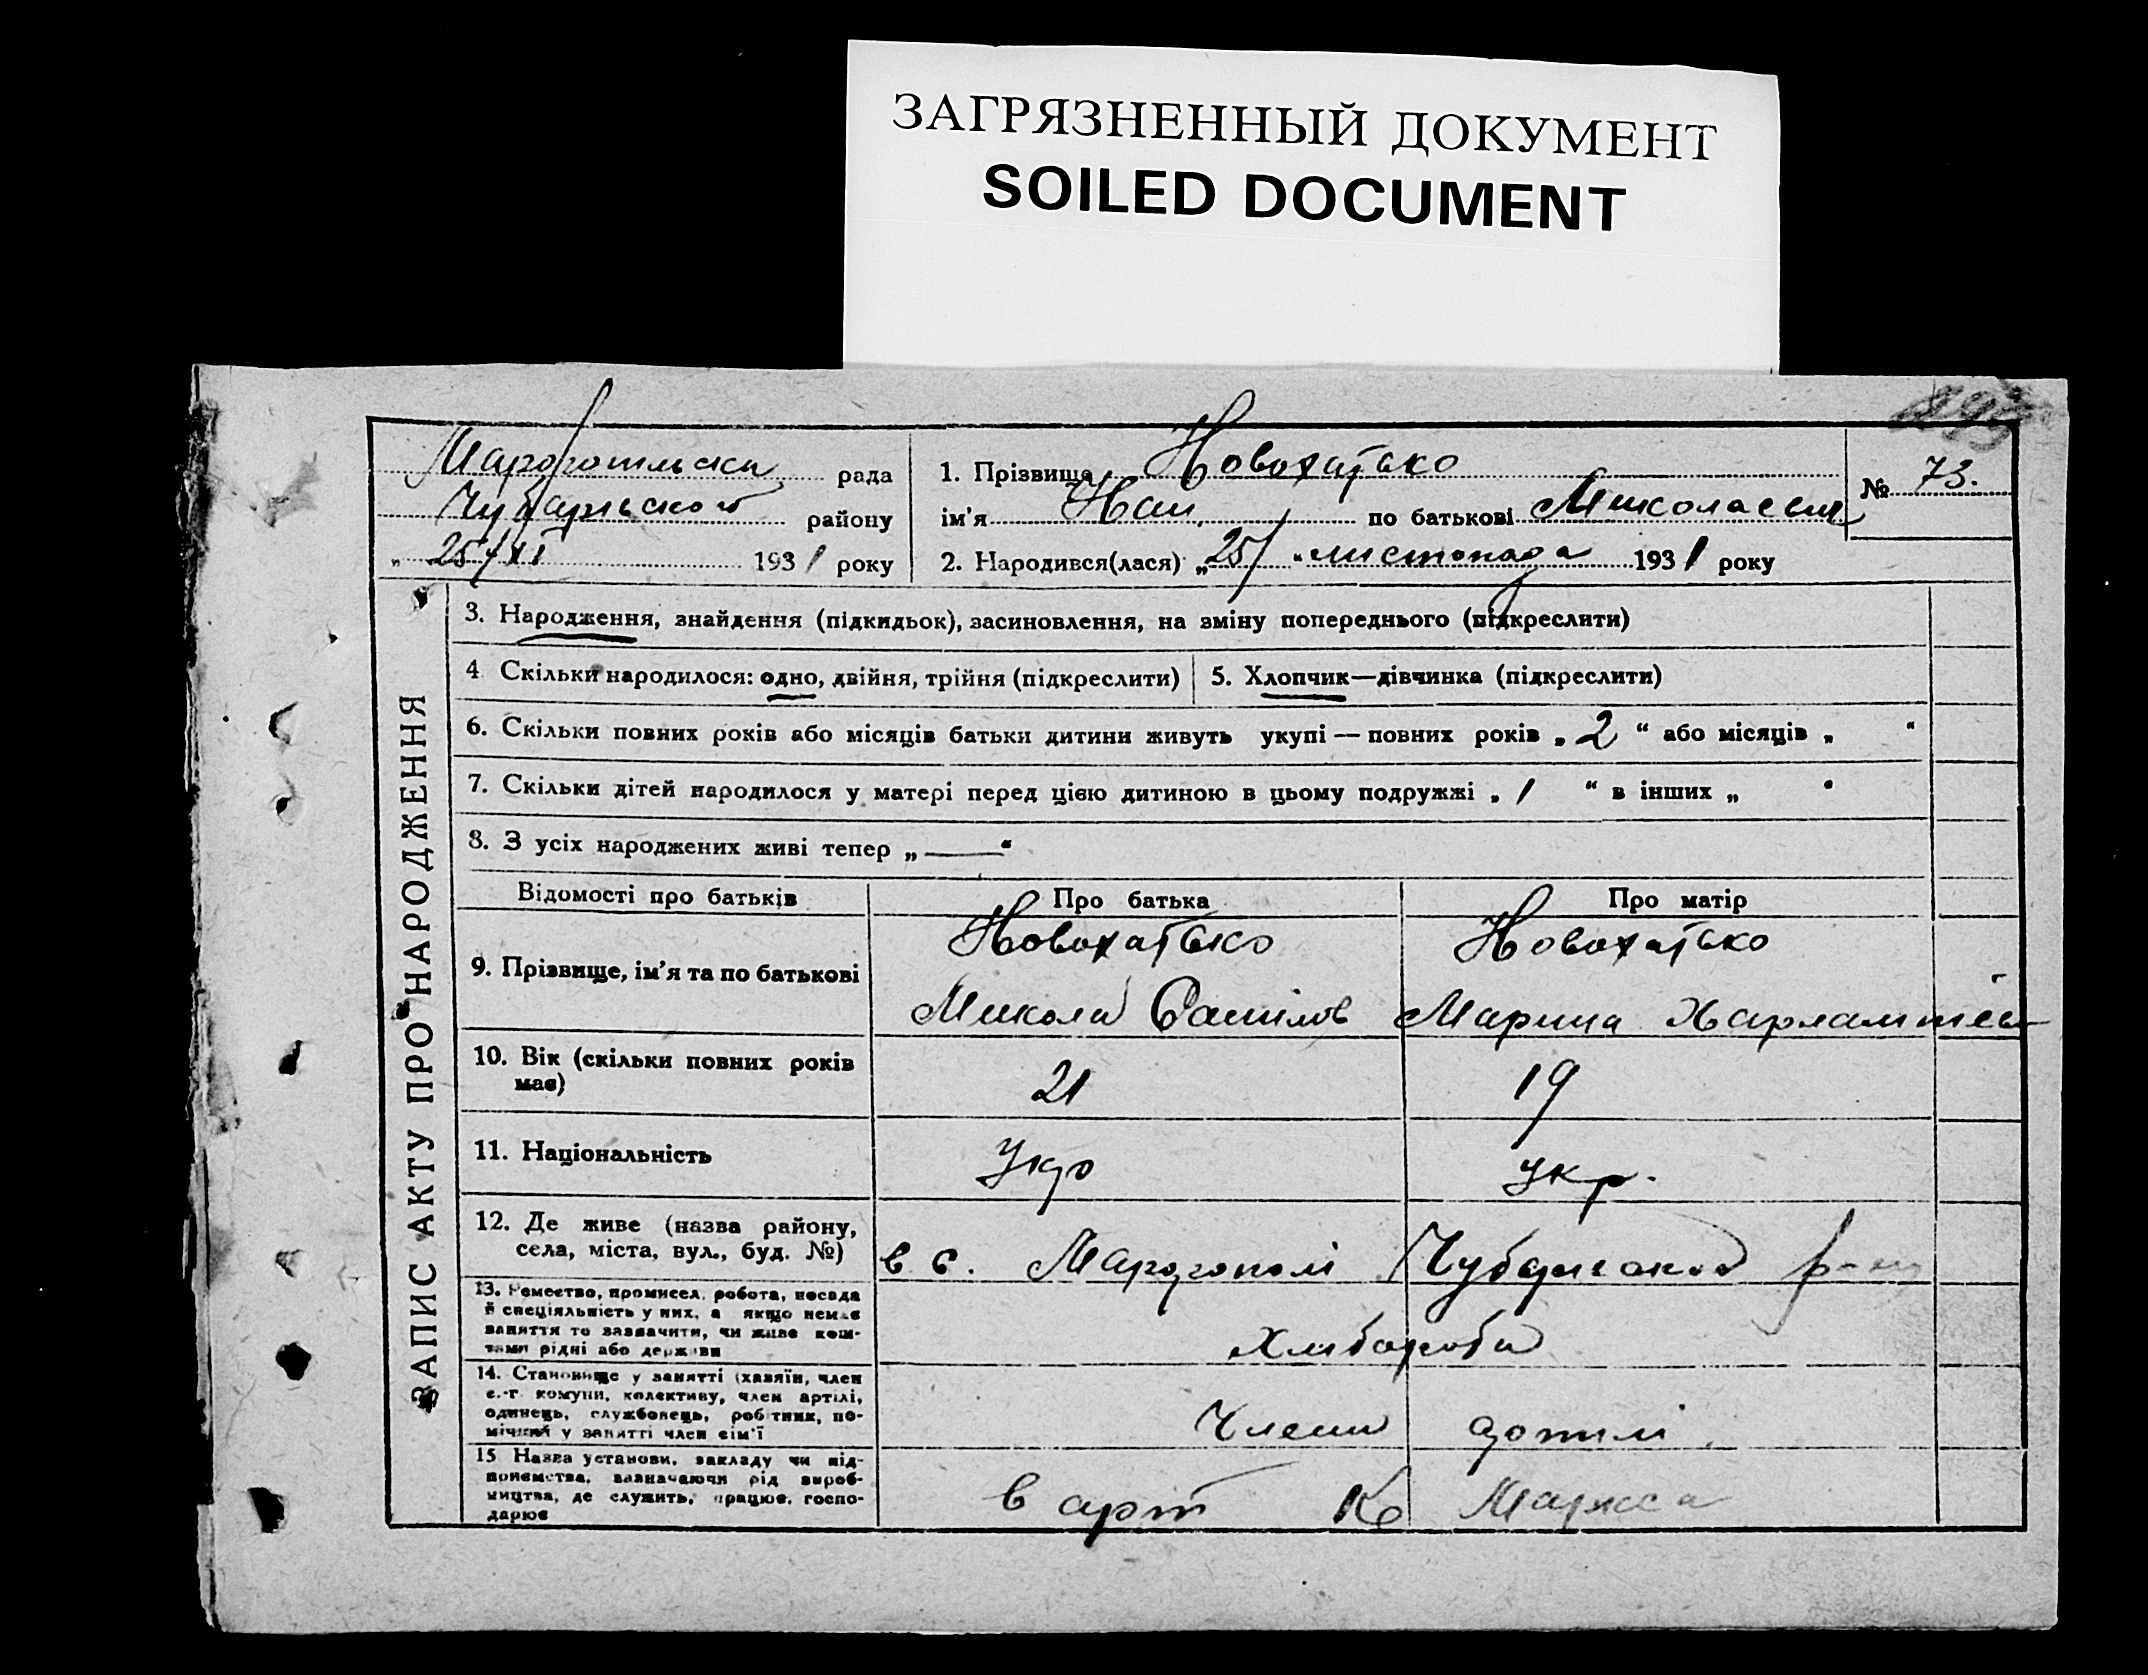 ЗАГРЯЗНЕННЫЙ ДОКУМЕНТ
SOILED DOCUMENT
рада
району
„ 25/XI 1931 року
1. Прізвище Новохатько
ім'я Іван по батькові
2. Народився(лася) „25/“ листопада 1931 року
№ 73.
ЗАПИС АКТУ ПРО НАРОДЖЕННЯ
3. Народження, знайдення (підкидьок), засиновлення, на зміну попереднього (підкреслити)
4 Скільки народилося: одно, двійня, трійня (підкреслити)
5. Хлопчик—дівчинка (підкреслити)
6. Скільки повних років або місяців батьки дитини живуть укупі — повних років „ 2 “ або місяців „ “
7. Скільки дітей народилося у матері перед цією дитиною в цьому подружжі „ 1 “ в інших „ “
8. З усіх народжених живі тепер „ — “
Відомості про батьків
Про батька
Про матір
9. Прізвище, ім'я та по батькові
Новохатько
Микола Данілов
Новохатько
Марина
10. Вік (скільки повних років
має)
21
19
11. Національність
Укр
Укр.
12. Де живе (назва району,
села, міста, вул., буд. №)
в с. р-ну
13. Ремество, промисел, робота, посада
й спеціяльність у них, а якщо немає
заняття то зазначити, чи живе кош-
тами рідні або держави
Хлібороби
14. Становище у занятті (хазяїн, член
с.-г. комуни, колективу, член артілі,
одинець, службовець, робітник, по-
мічний у занятті член сім'ї
Члени артилі
15 Назва установи, закладу чи під-
приємства, зазначаючи рід вироб-
ництва, де служить, працює, госпо-
дарює
в арт К Маркса